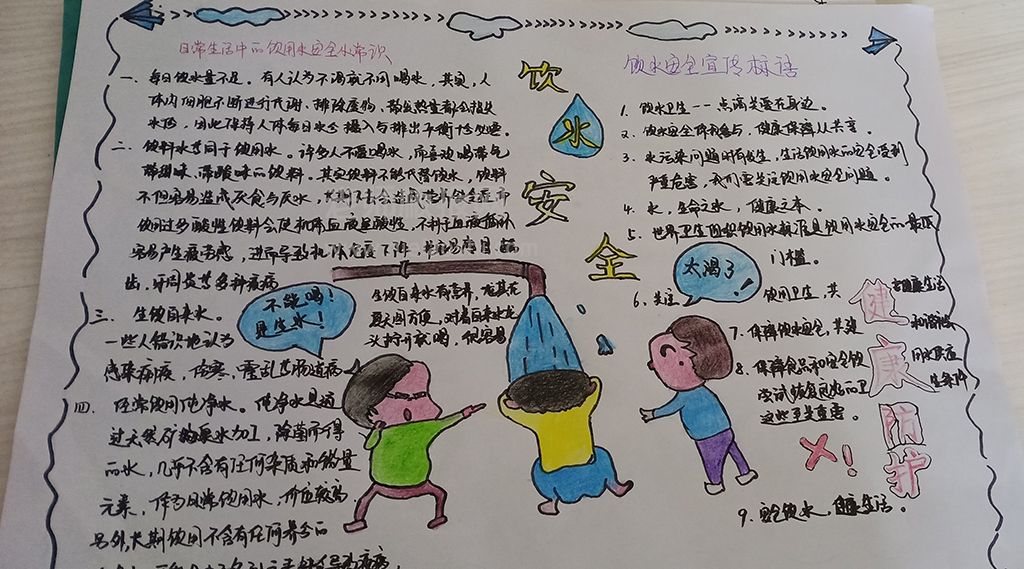 日常生活中的饮用水安全小常识
一、每日饮水量不足。有人认为不渴就不用喝水，其实，人
体内细胞不断进行代谢，排除废物，
水份，因此保持人体每日水分摄入与排出平衡十分必要。
二、饮料水等同于饮用水。许多人不爱喝水，而喜欢喝带气
带甜味、带酸味的饮料。其实饮料不能代替饮水，饮料
不但容易造成厌食与厌水，
饮用过多酸性饮料会使机体血液呈酸性，不利于血液循环
容易产生疲劳感，进而导致机体免疫下降，
出，牙周炎等多种疾病
三、生饮自来水。
一些人错误地认为
生饮自来水有营养，尤其在
夏天图方便，对着自来水龙
头拧开就喝，很容易
感染痢疾，伤寒，霍乱等肠道病
四、经常饮用纯净水。纯净水是通
过天然矿物原水加工，除菌所得
的水，几乎不含有任何杂质和微量
元素，作为日常饮用水，价位较高
另外，长期饮用不含有任何养分的
不能喝！
是生水！
饮
水
安
全
太渴了
！
饮水安全宣传标语
1. 饮水卫生--点滴关爱在身边。
2. 饮水安全你我参与，健康保障从共享。
3. 水污染问题时有发生，生活饮用水的安全受到
严重危害，我们要关注饮用水安全问题。
4. 水，生命之水，健康之本。
5. 世界卫生组织饮用水标准是饮用水安全的最低
门槛。
6. 关注 饮用卫生，共
健康生活
7. 保障饮水安全，共建
和谐
8. 保障食品和安全饮
用水
尝试恢复
这些至关重要。
9. 安全饮水，健康生活。
健
康
防
护
×！